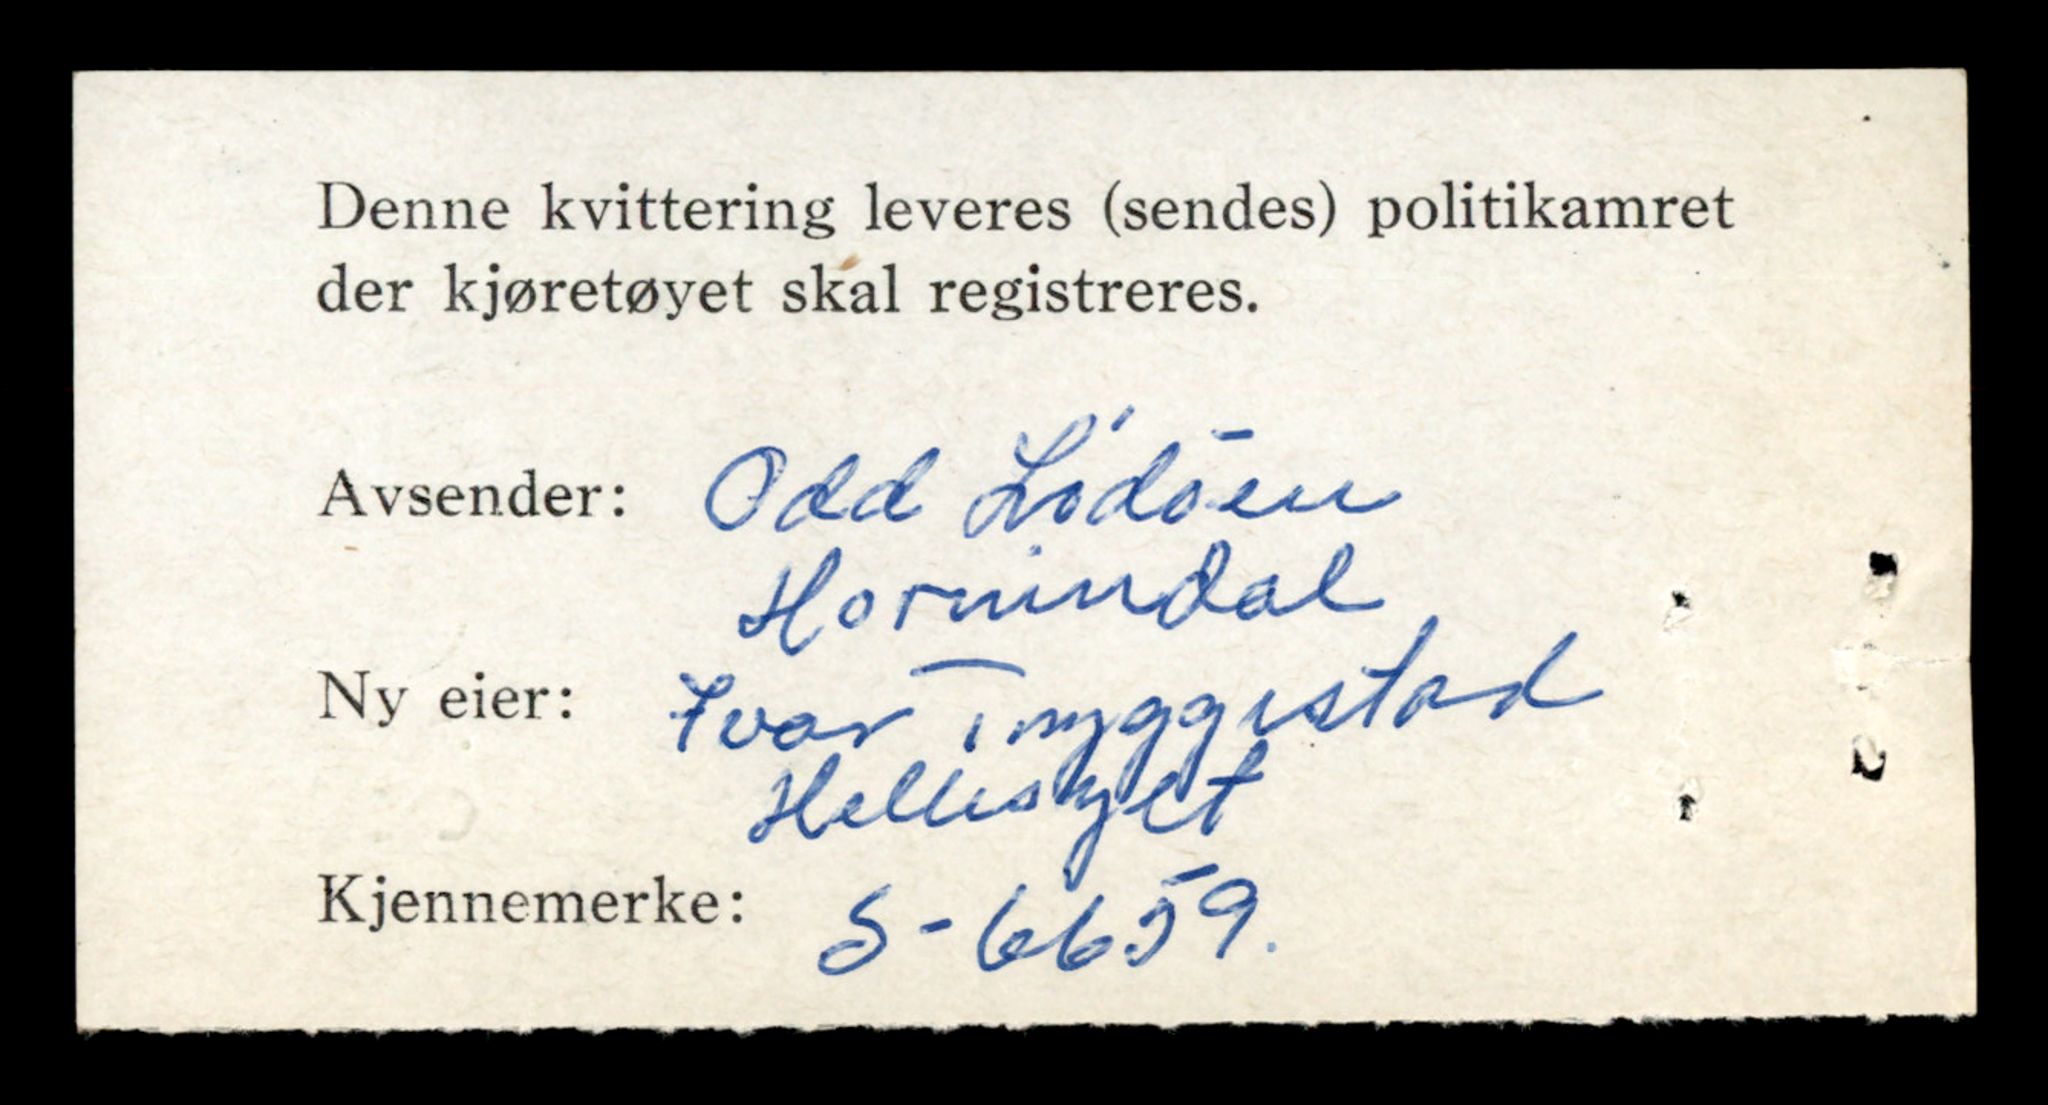 Denne kvittering leveres (sendes) politikamret
der kjøretøyet skal registreres.
Avsender: Odd Lödöen
Hornindal
Ny eier: Ivar Tryggestad
Hellesylt
Kjennemerke: S-6659.